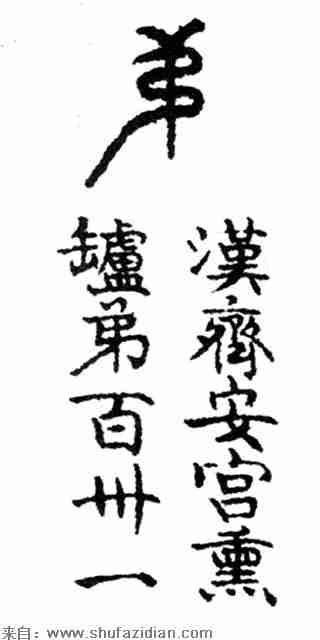 弟
漢齊安宫熏
罏弟百卌一
来自：www.shufazidian.com